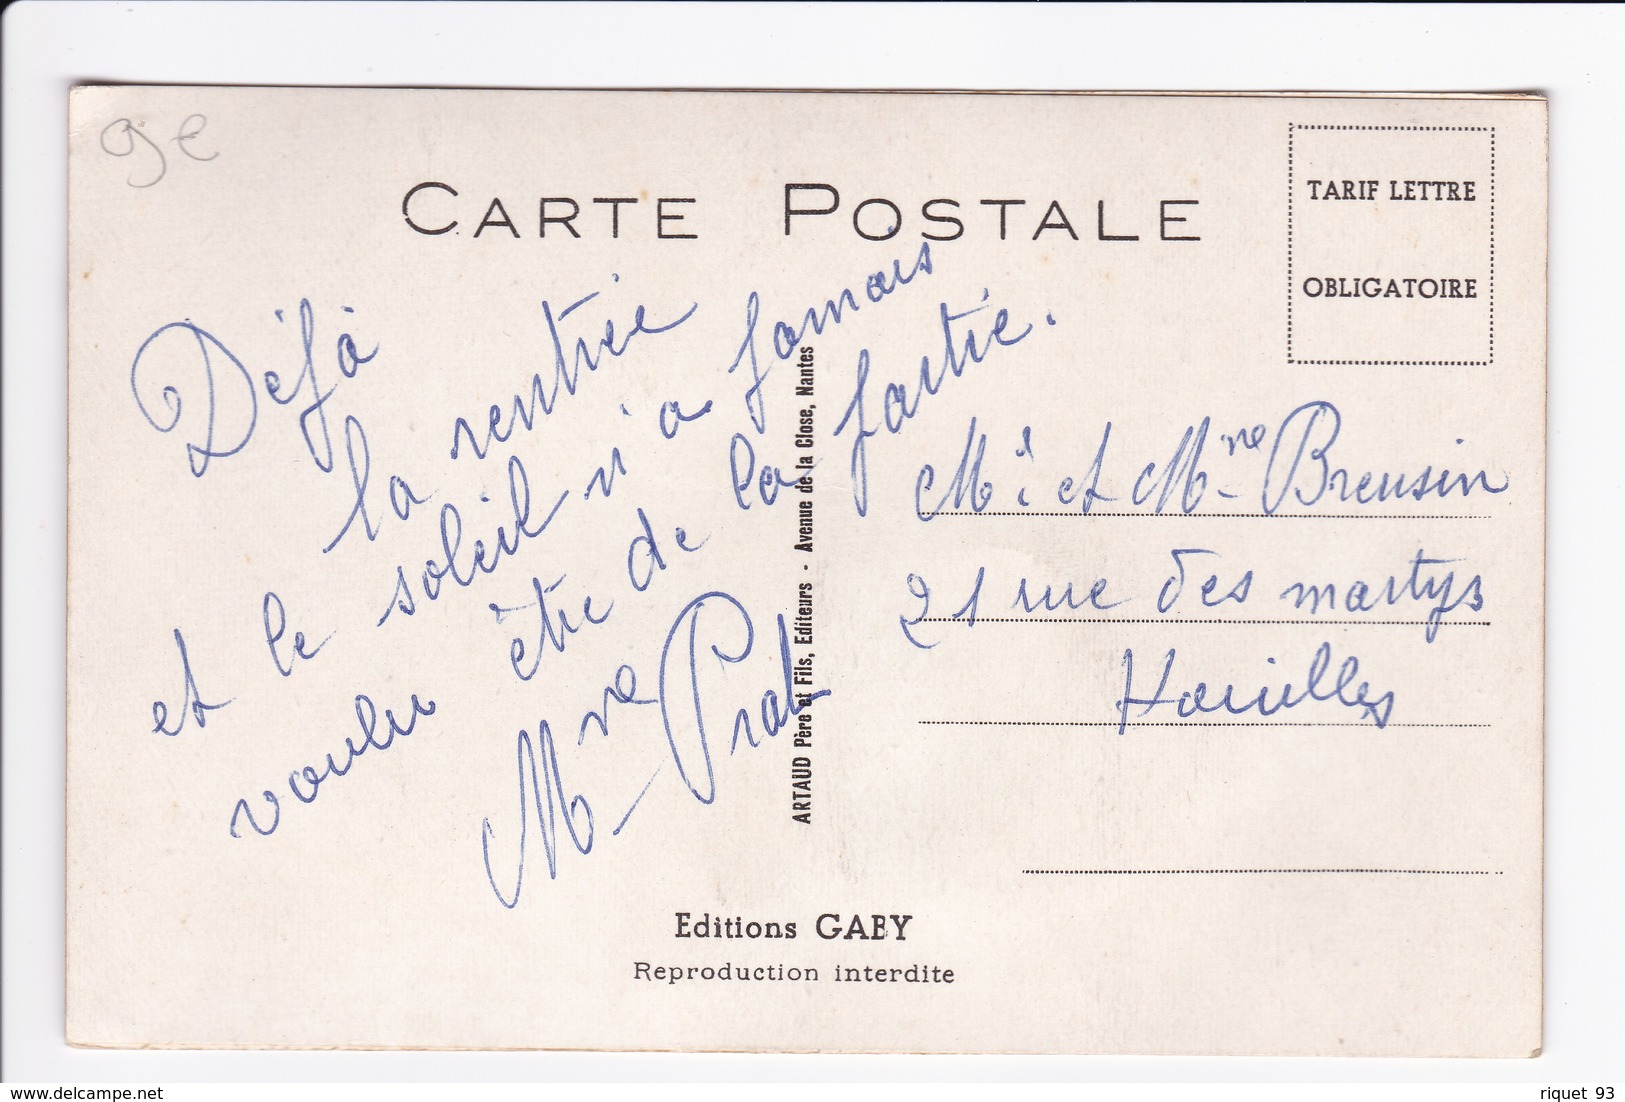 9e
CARTE POSTALE
TARIF LETTRE
OBLIGATOIRE
Déjà
la rentrée
et le soleil n'a jamais
voulu être de la partie.
Mme Prat
ARTAUD Père et Fils, Editeurs - Avenue de la Close, Nantes
Mr et Mme Breusin
21 rue des martys
Houilles
Editions GABY
Reproduction interdite
riquet 93